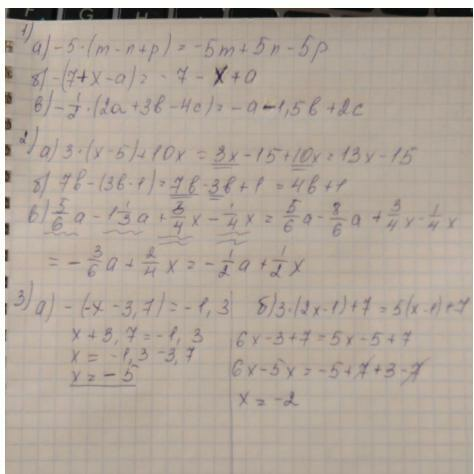 1)
а) -5·(m-n+p) = -5m+5n-5p
б) -(7+x-a) = -7-x+a
в) -1/2·(2a+3b-4c) = -a-1,5b+2c
2)
а) 3·(x-5)+10x = 3x-15+10x = 13x-15
б) 7b-(3b-1) = 7b-3b+1 = 4b+1
в) 5/6a - 1 1/3a + 3/4x - 1/4x = 5/6a - 8/6a + 3/4x - 1/4x
= -3/6a + 2/4x = -1/2a + 1/2x
3) а) -(-x-3,7) = -1,3
x+3,7 = -1,3
x = -1,3-3,7
x = -5
б) 3·(2x-1)+7 = 5(x-1)+7
6x-3+7 = 5x-5+7
6x-5x = -5+7+3-7
x = -2